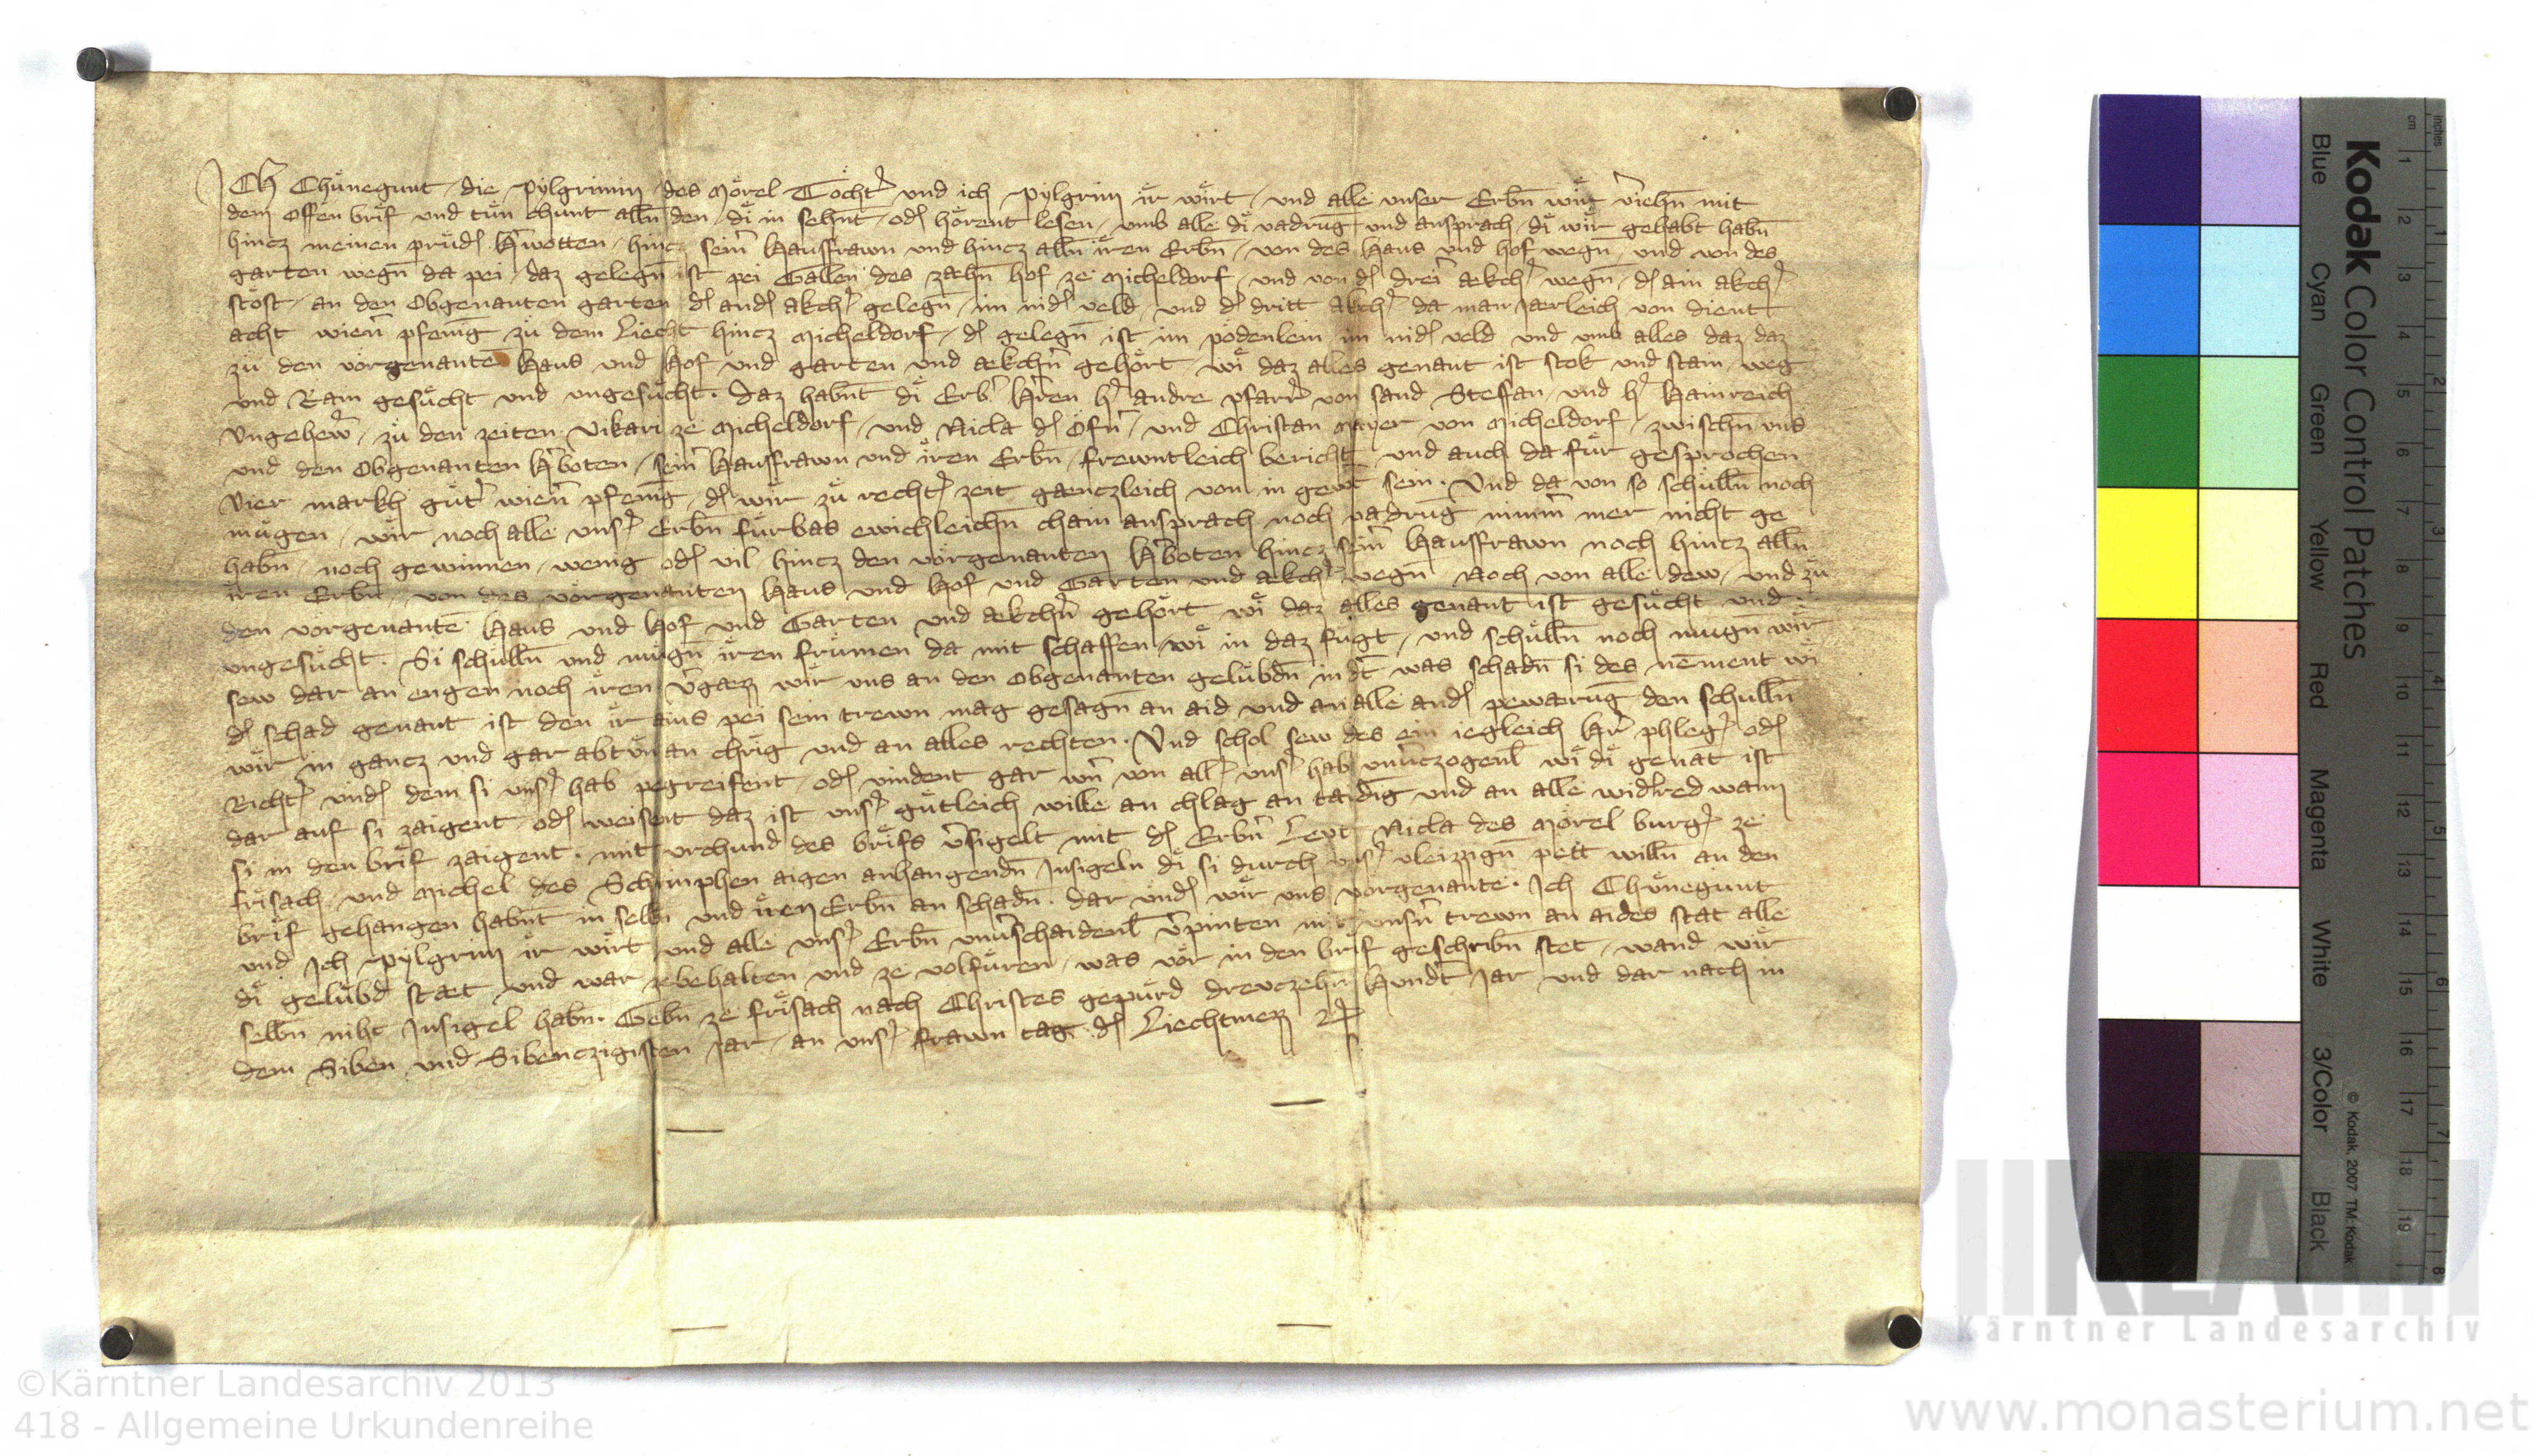 ICh Chuͤnegunt die Pylgrimin des Moͤrel Tochtˀ und ich Pylgrim iͤr wiͤrt und alle unser Erbn̄ wiͤr vˀiehn̄ mit
dem offen briͤf und tuͤn chunt alln̄ den diͤ in sehn̄t odˀ hoͤrent lesen umb alle diͤ vadrūg und ansprach diͤ wiͤr gehabt habn̄
hincz meinen pruͤdˀ Hˀwotten hincz seinˀ Hausfrawn und hincz alln̄ iͤren Erbn̄ von des Haus und hof wegn̄ und von des
garten wegn̄ da pei daz gelegn̄ ist pei Gallen des zaehn̄ hof ze Micheldorf und von dˀ drei aekchˀ wegn̄ dˀ ain akchˀ
stost an den obgenanten garten dˀ andˀ akchˀ gelegn̄ im nidˀ veld und dˀ dritt akchˀ da man jaerleich von dient
acht wienˀ pfenīg zuͤ dem Liecht hincz Micheldorf dˀ gelegn̄ ist im podenlem im nidˀ veld und umb alles daz daz
zuͤ den vorgenantē Haus und Hof und garten und aekchˀn gehoͤrt wiͤ daz alles genant ist stok und stain weg
und Rain gesuͤcht und ungesuͤcht. Daz habn̄t diͤ Erbˀ Hˀren hˀ andre pfarrˀ von sand Steffan und hˀ Hainreich
Ungehewˀ zuͤ den zeiten vikari ze Micheldorf und Nicla dˀ Ofnˀ und Christan Mayer von Micheldorf zwischn̄ uns
und den obgenanten Hˀboten seinˀ Hausfrawn und iͤren Erbn̄ frewntleich bericht und auch da fuͤr gesprochen
vier markh guͤtˀ wienˀ pfenīg dˀ wiͤr zuͤ rechtˀ zeit gaenczleich von in gewˀt sein. Und da von so schuͤlln̄ noch
muͤgen wiͤr noch alle unsˀ Erbn̄ fuͤrbas ewichleichn̄ chain ansprach noch vadrūg nimmˀ mer nicht ge
habn̄ noch gewinnen wenig odˀ vil hincz den vorgenanten Hˀboten hincz seinˀ Hausfrawn noch hincz alln̄
iͤren Erbn̄ von des vorgenanten Haus und Hof und Garten und aekchˀ wegn̄ Noch von alle dew und zuͤ
den vorgenantē Haus und Hof und Garten und aekchˀn gehoͤrt wiͤ daz alles genant ist gesuͤcht und
ungesuͤcht. Si schuͤlln̄ und muͤgn̄ iͤren fruͤmen da mit schaffen wiͤ in daz fuͤgt und schuͤlln̄ noch mugn̄ wiͤr
sew dar an engen noch iͤren vˀgaezz wiͤr uns an den obgenanten geluͤbdn̄ indˀt was schadn̄ si des nēment wiͤ
dˀ schad genant ist den iͤr ains pei sein trewn mag gesagn̄ an aid und an alle andˀ pewaerūg den schulln̄
wiͤr in gancz und gar abtuͤn an chriͤg und an alles rechten. Und schol sew des ein iegleich Hˀr phlegˀ odˀ
Richtˀ undˀ dem si unsˀ hab pegreifent odˀ vindent gar wˀn von allˀ unsˀ hab unvˀczogenl̄ wiͤ diͤ genāt ist
dar auf si zaigent odˀ weisent daz ist unsˀ guͤtleich wille an chlag an taidīg und an alle widˀred wann
si in den briͤf zaigent. mit urchund des briͤfs vˀsigelt mit dˀ Erbˀn Levt Nicla des Moͤrel burgˀ ze
friͤsach und Michel des Schrimphen aigen anhangendn̄ Insigeln diͤ si durch unsˀ vleizzign̄ pett willn̄ an den
briͤf gehangen habn̄t in selbn̄ und iͤren Erbn̄ an schadn̄. dar undˀ wiͤr uns vorgenantē. Ich Chuͤnegunt
und Ich Pylgrim iͤr wiͤrt und alle unsˀ Erbn̄ unvˀschaidenl̄ vˀpinten mit unsˀn trewn an aides stat alle
diͤ geluͤbd staet und war ze behalten und ze volfuͤren was vor in den briͤf geschribn̄ stet wand wiͤr
selbn̄ niht Insigel habn̄. Gebn̄ ze friͤsach nach Christes gepuͤrd drevczehn̄ Hundˀt Jar und dar nach in
dem Siben und Sibenczigisten Jar an unsˀ frawn tag dˀ Liechtmezz
Kodak Color Control Patches
Blue Cyan Green Yellow Red Magenta White 3/Color Black
© Kodak, 2007 TM: Kodak
cm 1 2 3 4 5 6 7 8 9 10 11 12 13 14 15 16 17 18 19
inches 1 2 3 4 5 6 7 8
KLA
Kärntner Landesarchiv
©Kärntner Landesarchiv 2013
418 - Allgemeine Urkundenreihe
www.monasterium.net